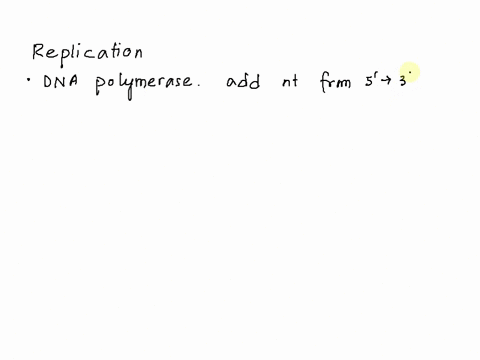 Replication
• DNA polymerase. add nt frm 5' → 3'